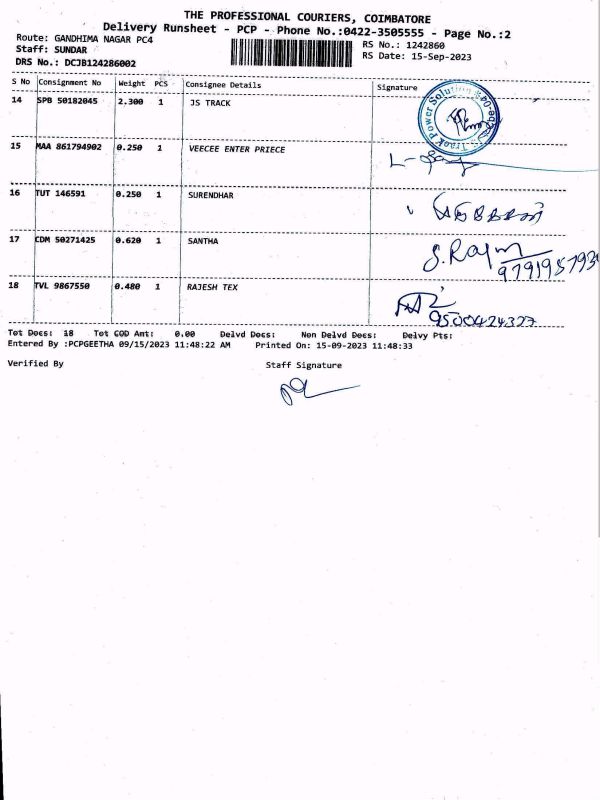 THE PROFESSIONAL COURIERS, COIMBATORE
Delivery Runsheet - PCP - Phone No.:0422-3505555 - Page No.:2
Route: GANDHIMA NAGAR PC4 RS No.: 1242860
Staff: SUNDAR RS Date: 15-Sep-2023
DRS No.: DCJB124286002
S No Consignment No Weight PCS Consignee Details Signature
14 SPB 50182045 2.300 1 JS TRACK
15 MAA 861794902 0.250 1 VEECEE ENTER PRIECE
16 TUT 146591 0.250 1 SURENDHAR
17 CDM 50271425 0.620 1 SANTHA
18 TVL 9867550 0.480 1 RAJESH TEX
9500424327
Tot Docs: 18 Tot COD Amt: 0.00 Delvd Docs: Non Delvd Docs: Delvy Pts:
Entered By :PCPGEETHA 09/15/2023 11:48:22 AM Printed On: 15-09-2023 11:48:33
Verified By Staff Signature